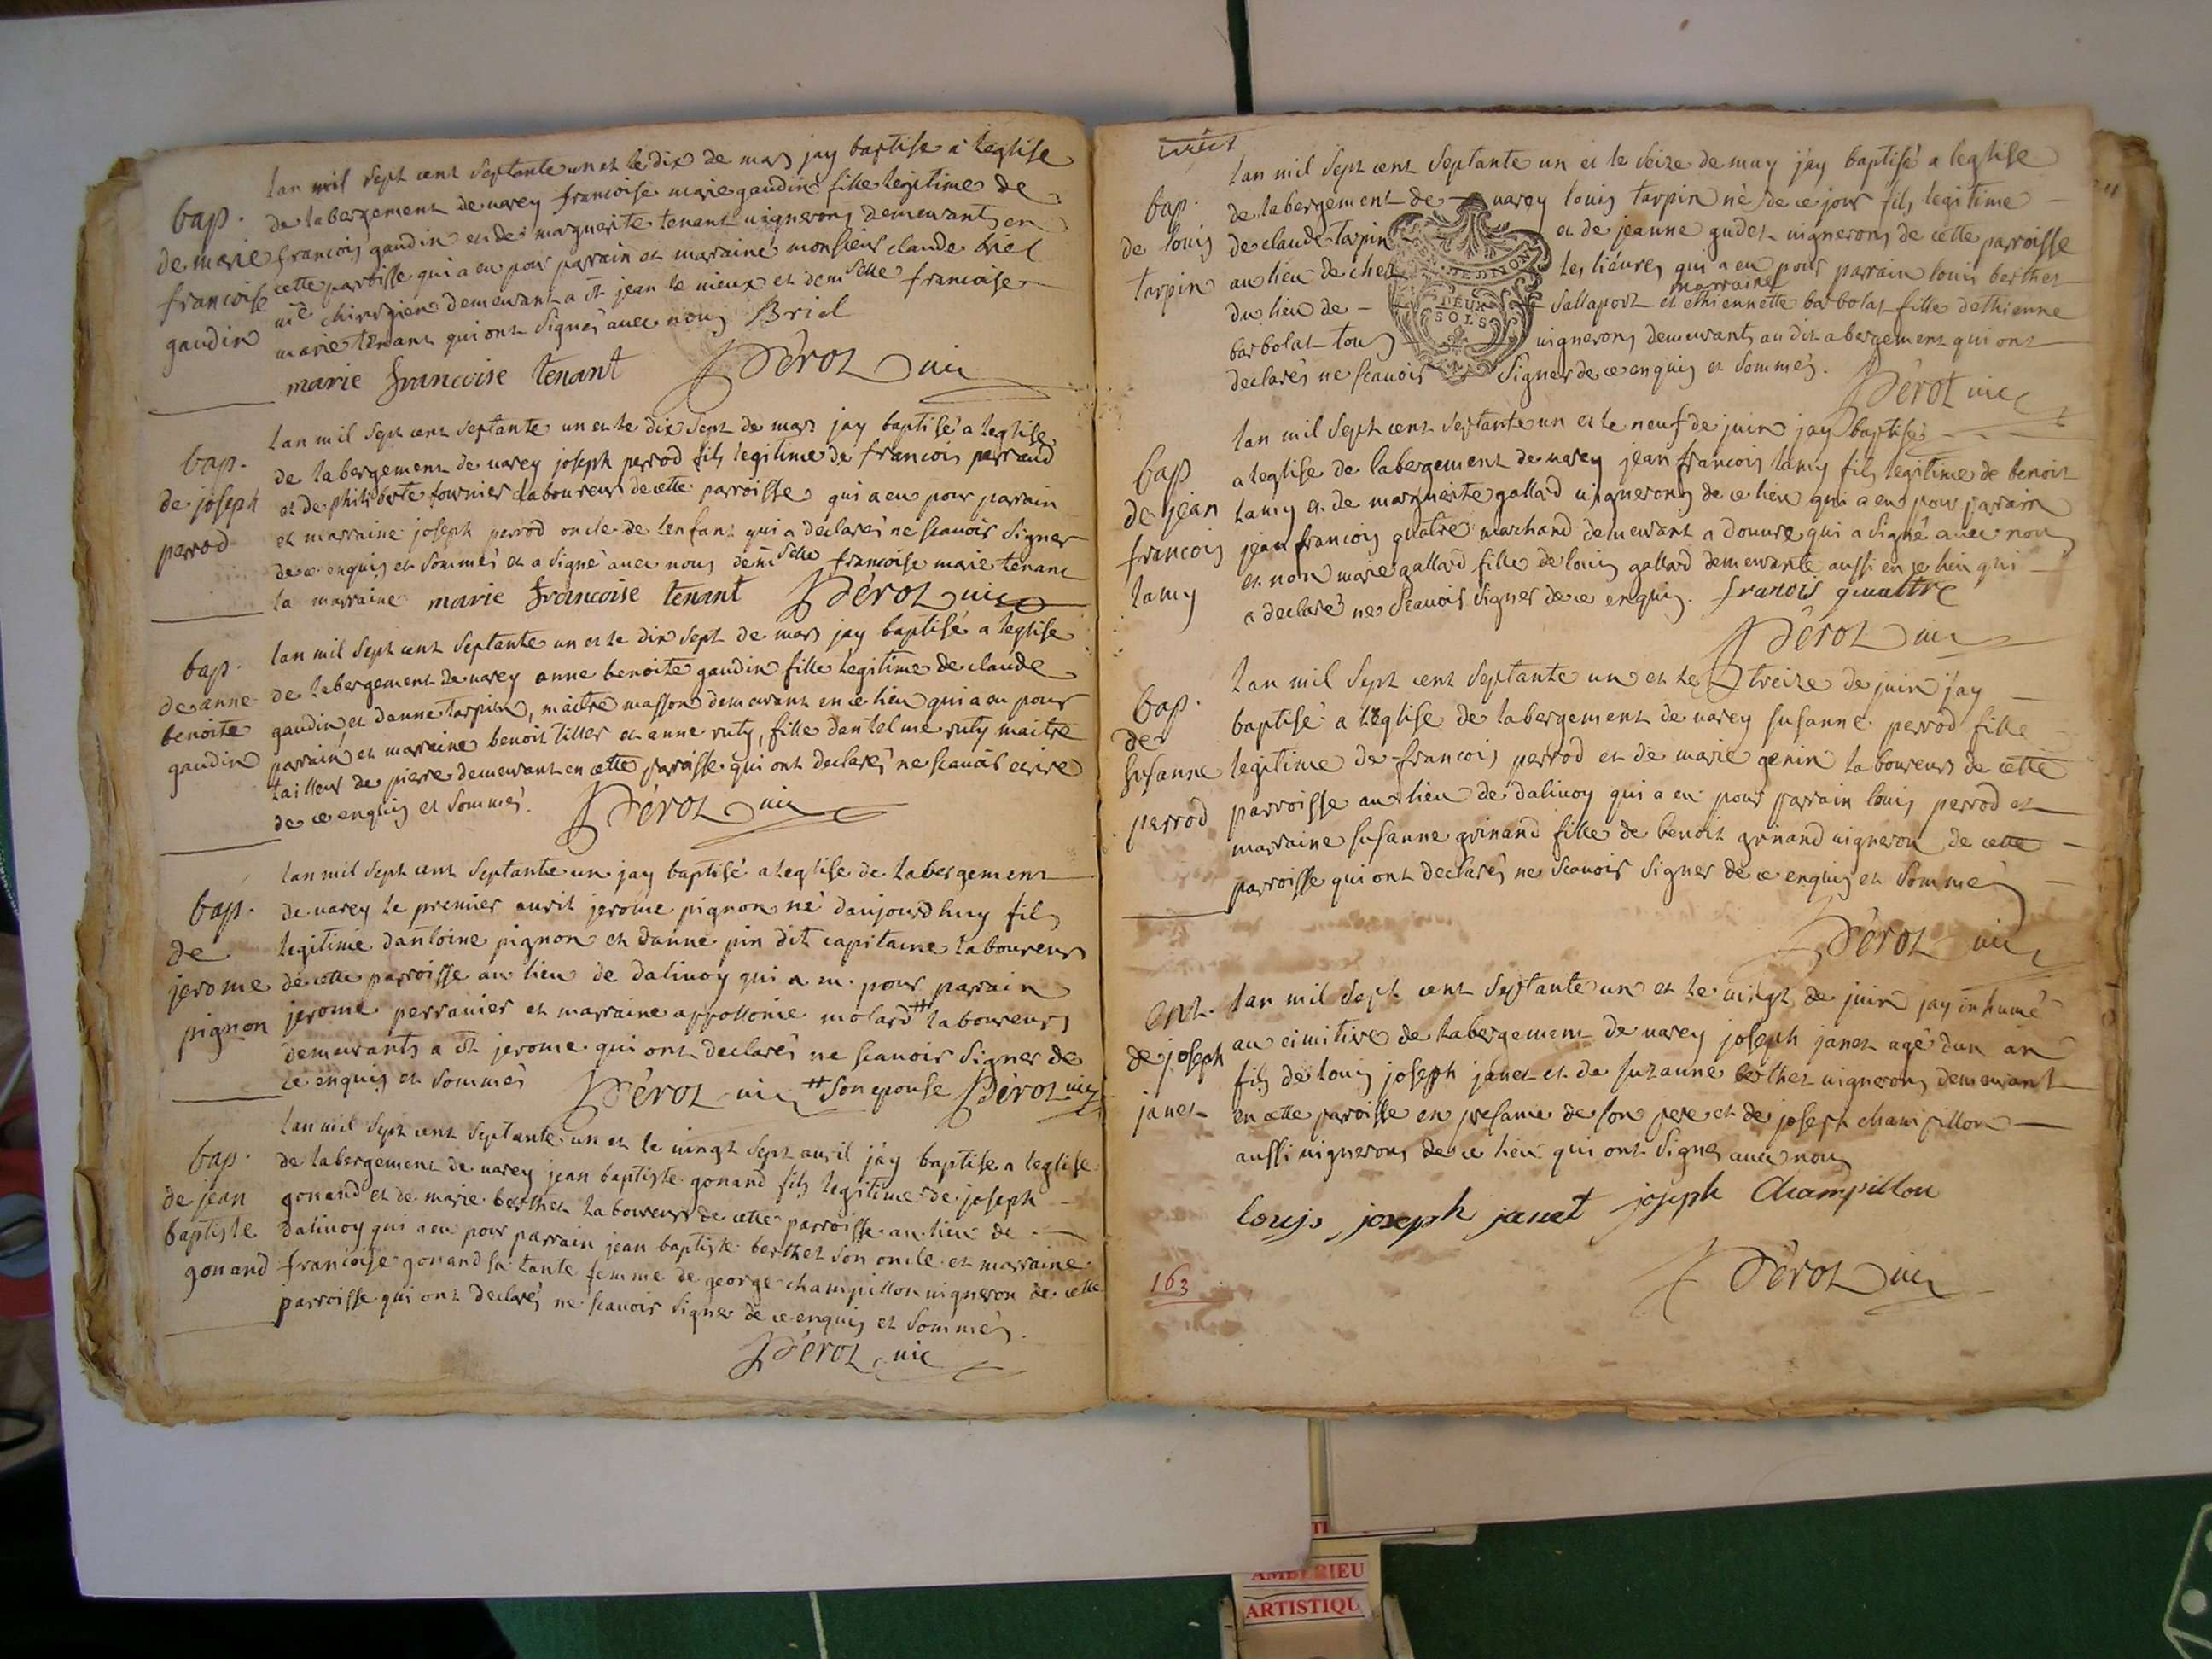 lan mil sept cent septante un et le dix de mars jay baptisé a leglise
bap. de labergement de varey francoise marie gaudin fille legitime de
de marie francois gaudin et de marguerite tenant vignerons demeurants en
francoise cette parroisse qui a eu pour parrain et marraine monsieur claude briel
gaudin me chirurgien demeurant a st jean le vieux et demlle francoise
marie tenant qui ont signés avec nous Briel
marie francoise tenant Pérot vic
lan mil sept cent septante un et le dix sept de mars jay baptisé a leglise
bap. de labergement de varey joseph perrod fils legitime de francois perraud
de joseph et de philiberte fournier laboureurs de cette parroisse qui a eu pour parain
perrod et marraine joseph perrod oncle de lenfant qui a déclarés ne scavoir signer
de ce enquis et sommés et a signé avec nous demlle francoise marie tenant
la marraine marie francoise tenant Pérot vic
lan mil sept cent septante un et le dix sept de mars jay baptisé a leglise
bap. de labergement de varey anne benoite gaudin fille legitime de claude
de anne gaudin et danne tarpin, maitre masson demeurant en ce lieu qui a eu pour
benoite parrain et marraine benoit tiller et anne ruty, fille dantelme ruty maitre
gaudin tailleur de pierre demeurant en cette parroisse qui ont declarés ne scavoir ecrire
de ce enquis et sommés. Pérot vic
lan mil sept cent septante un jay baptisé a leglise de labergement
bap. de varey le premier avril jerome pignon né daujourdhuy fils
de legitime dantoine pignon et danne pin dit capitaine laboureurs
jerome de cette parroisse au lieu de dalivoy qui a eu pour parrain
pignon jerome perravier et marraine appollonie molard # laboureurs
demeurants a st jerome qui ont declarés ne scavoir signer de
ce enquis et sommés Pérot vic # son epouse Pérot vic
lan mil sept cent septante un et le vingt sept avril jay baptisé a leglise
bap. de labergement de varey jean baptiste gonand fils legitime de joseph
de jean gonand et de marie berthet laboureurs de cette parroisse au lieu de
baptiste dalivoy qui a eu pour parrain jean baptiste berthet son oncle et marraine
gonand francoise gonand sa tante femme de george champillon vigneron de cette
parroisse qui ont declarés ne scavoir signer de ce enquis et sommés.
Pérot vic
lan mil sept cent septante un et le seize de may jay baptisé a leglise
bap. de labergement de varey louis tarpin né de ce jour fils legitime
de louis de claude tarpin et de jeanne gudet vignerons de cette parroisse
tarpin au lieu de chez les lièvres qui a eu pour parrain louis berthet
du lieu de sallaport et marraine ethiennette barbolat fille dethienne
barbolat tous vignerons demeurants au dit abergement qui ont
declarés ne scavoir signer de ce enquis et sommés.
DEUX
SOLS
Pérot vic
lan mil sept cent septante un et le neuf de juin jay baptisé
bap a leglise de labergement de varey jean francois lamy fils legitime de benoit
de jean lamy et de marguerite gallard vignerons de ce lieu qui a eu pour parrain
francois jean francois quatre marchand demeurant a douvre qui a signé avec nous
lamy et non marie gallard fille de louis gallard demeurante aussi en ce lieu qui
a declaré ne scavoir signer de ce enquis. francois quattre
Pérot vic
lan mil sept cent septante un et le treize de juin jay
bap. baptisé a leglise de labergement de varey susanne perrod fille
de legitime de francois perrod et de marie genin laboureurs de cette
susanne parroisse au lieu de dalivoy qui a eu pour parrain louis perrod et
perrod marraine susanne grinand fille de benoit grinand vigneron de cette
parroisse qui ont declarés ne scavoir signer de ce enquis et sommés
Pérot vic
ent. lan mil sept cent septante un et le vingt de juin jay inhumé
de joseph au cimitire de labergement de varey joseph janet agé dun an
janet fils de louis joseph janet et de suzanne berthet vignerons demeurant
en cette parroisse en presance de son pere et de joseph champillon
aussi vignerons de ce lieu qui ont signes avec nous
louis joseph janet joseph Champillon
Pérot vic
163
AMBERIEU
ARTISTIQU